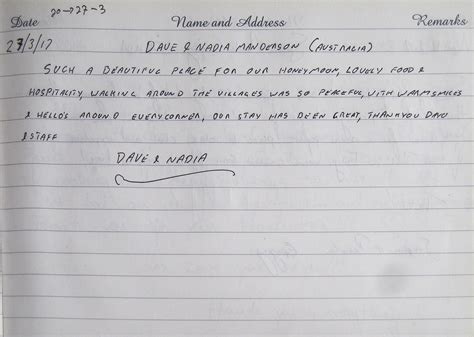 20 → 27-3
Date Name and Address Remarks
27/3/17 DAVE & NADIA MANDERSON (AUSTRALIA)
SUCH A BEAUTIFUL PLACE FOR OUR HONEYMOON, LOVELY FOOD &
HOSPITALITY, WALKING AROUND THE VILLAGES WAS SO PEACEFUL, WITH WARM SMILES
& HELLO'S AROUND EVERY CORNER, OUR STAY HAS BEEN GREAT, THANKYOU DAYU
& STAFF
DAVE & NADIA